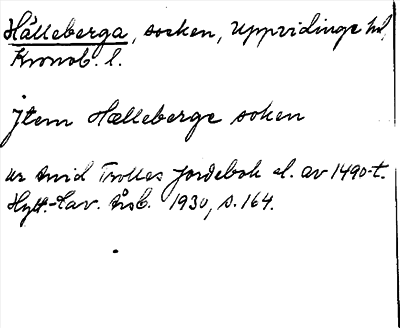 Hälleberga, socken, Uppvidinge hd,
Kronob. l.
Jtem Hælleberge soken
ur Arvid Trolles Jordebok sl. av 1490-t.
Hylt.-Cav. Årsb. 1930, s. 164.